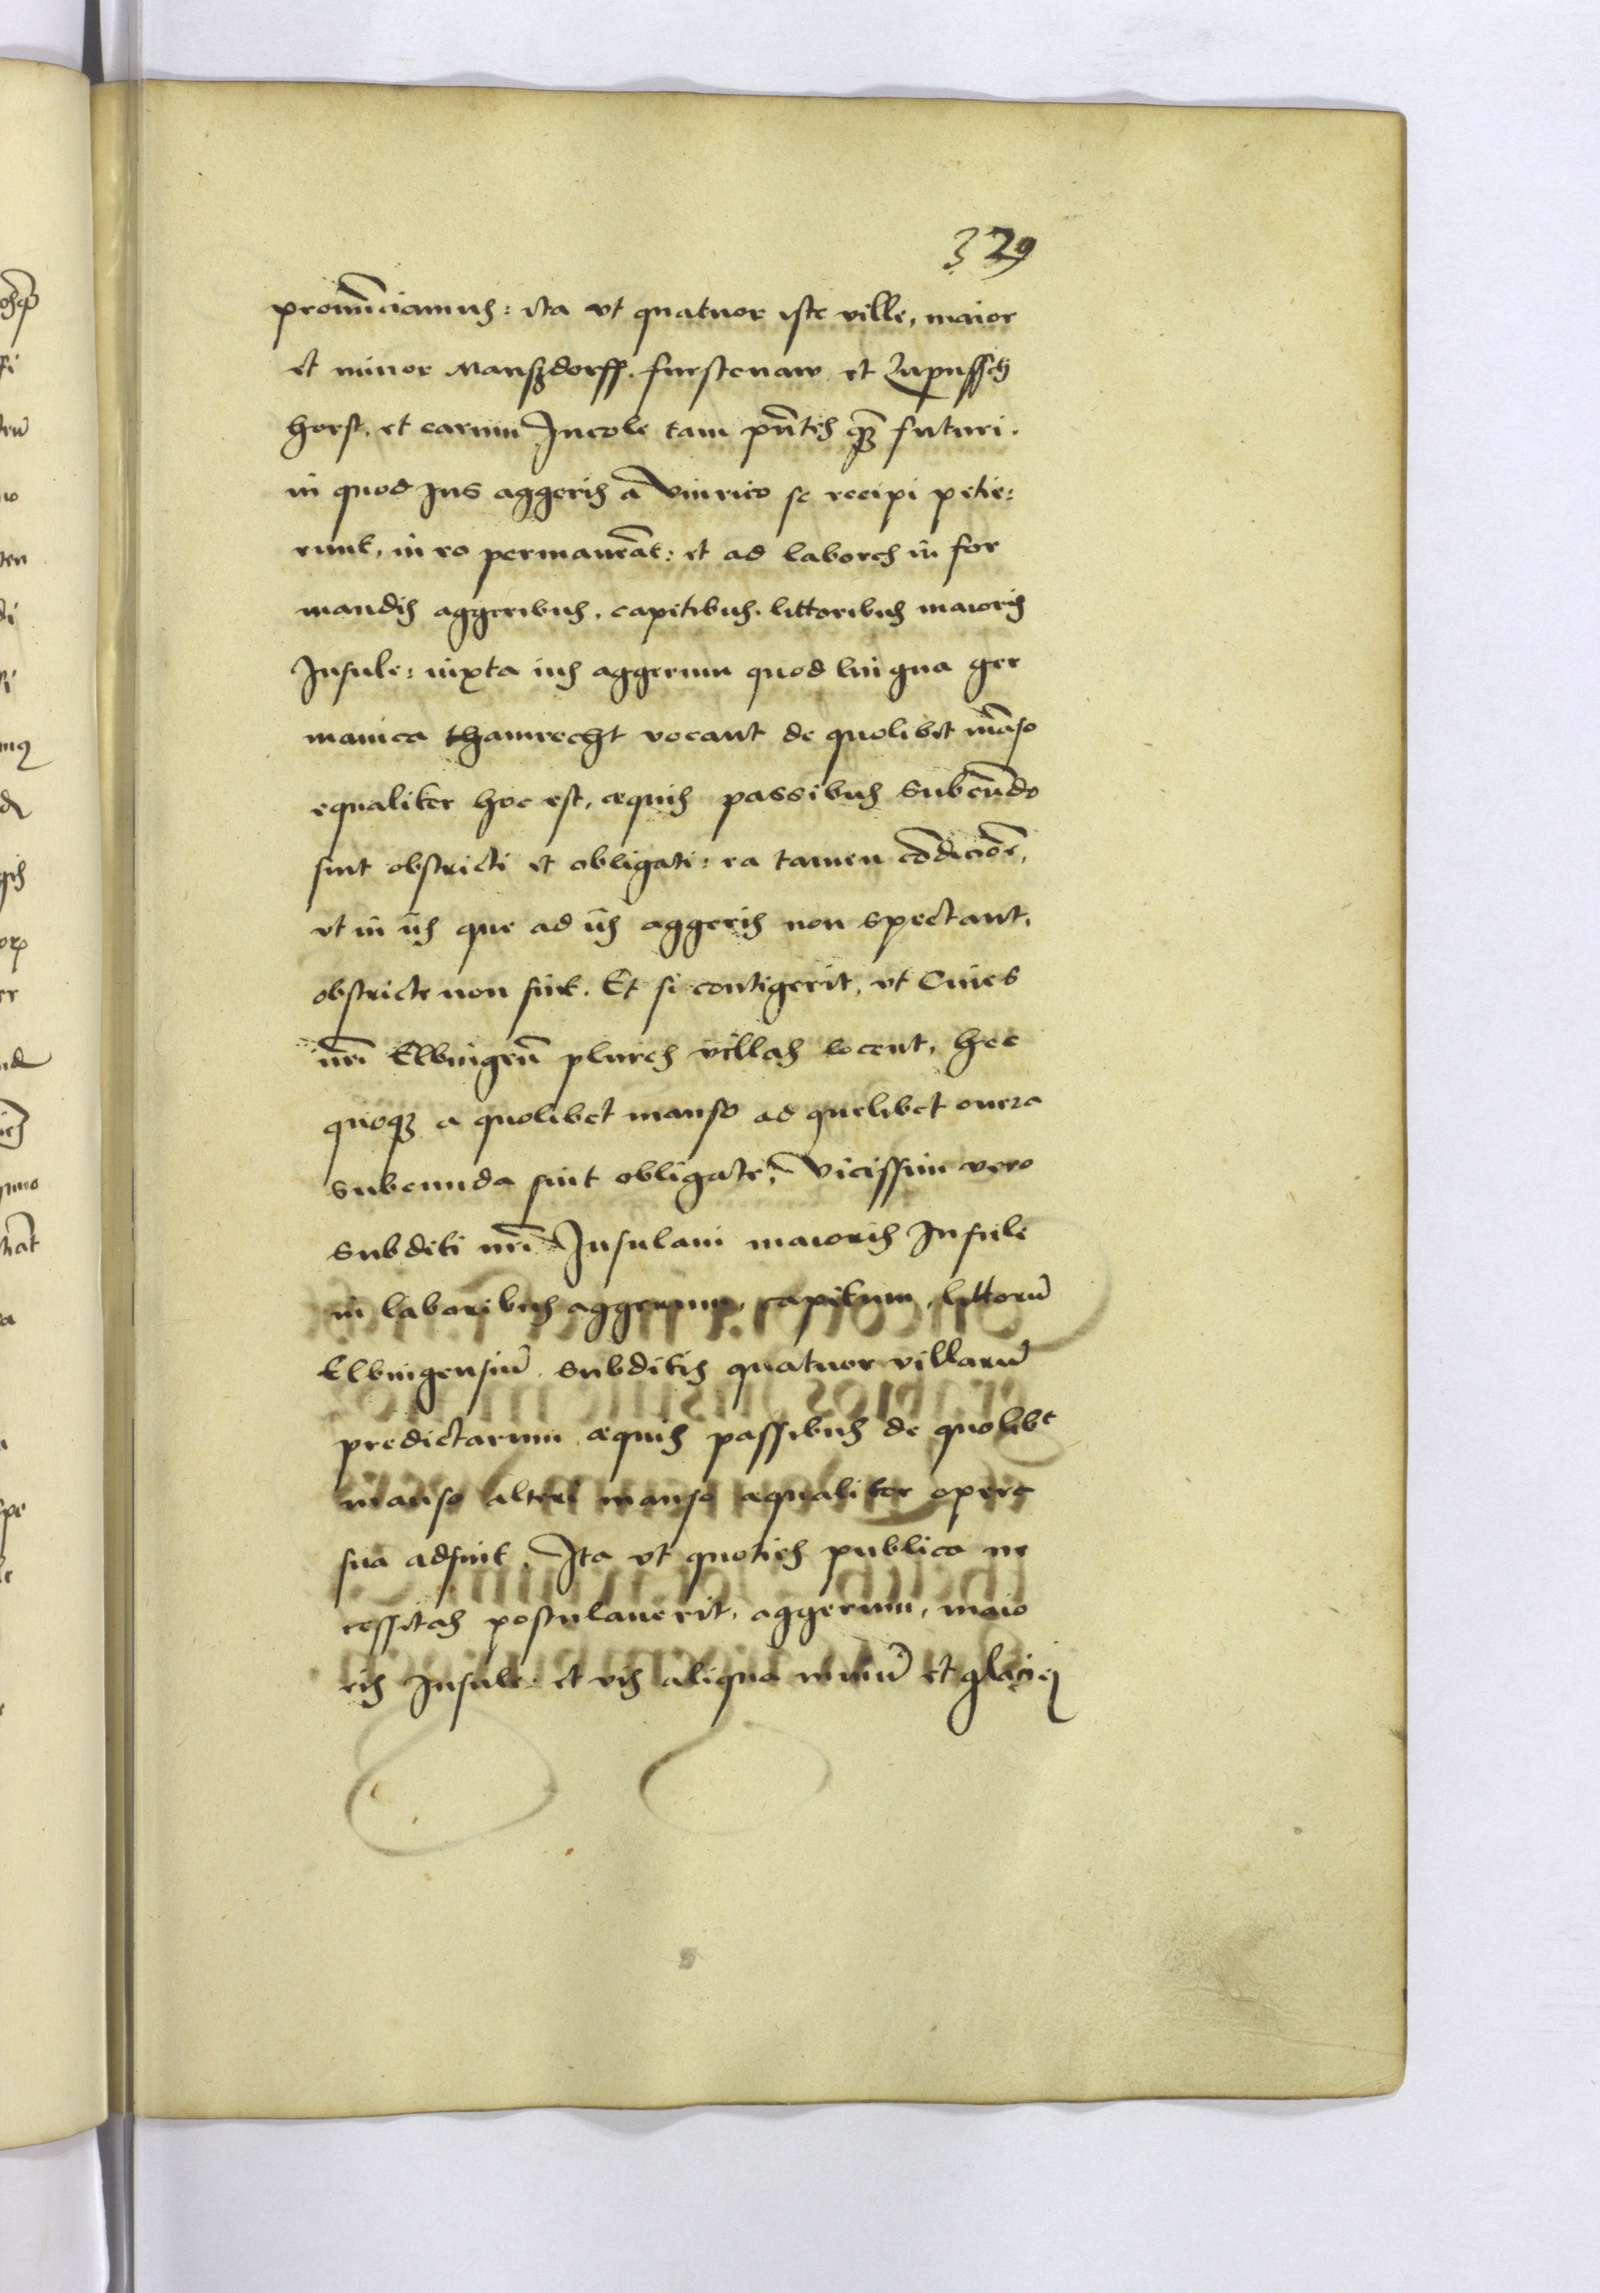 329
pronūciamus: ita vt quatuor iste ville, maior
et minor Manßdorff. furstenaw et Lupusch
horst. et earum Incole tam pn̄tes qͣꝫ futuri.
in quod Jus aggeris a Vinrico se recipi petie:
runt, in eo permaneāt: et ad labores in for
mandis aggeribus, capitibus. littoribus maioris
Insule: iuxta ius aggerum quod lingua ger
manica thamrecht vocant de quolibet māso
equaliter hoc est, æquis passibus subeūdo
sint obstricti et obligati: ea tamen cōdicioē,
vt in iis que ad ius aggeris non spectant,
obstricte non sint. Et si contigerit, vt Ciues
nr̄i Elbingen̄ plures villas locent, hec
quoqꝫ a quolibet manso ad quelibet onera
subeunda sint obligate, Vicissim vero
subditi nr̄i Insulani maioris Insule
in laboribus aggerum, capitum, littorū
Elbingensiū. subditis quatuor villarū
predictarum æquis passibus de quolibᵗ
manso alteri manso æqualiter opere
suo adsint, Ita vt quoties publica ne
cessitas postulauerit, aggerum, maio
ris Insule: et vis aliqua niuiū et glaciei